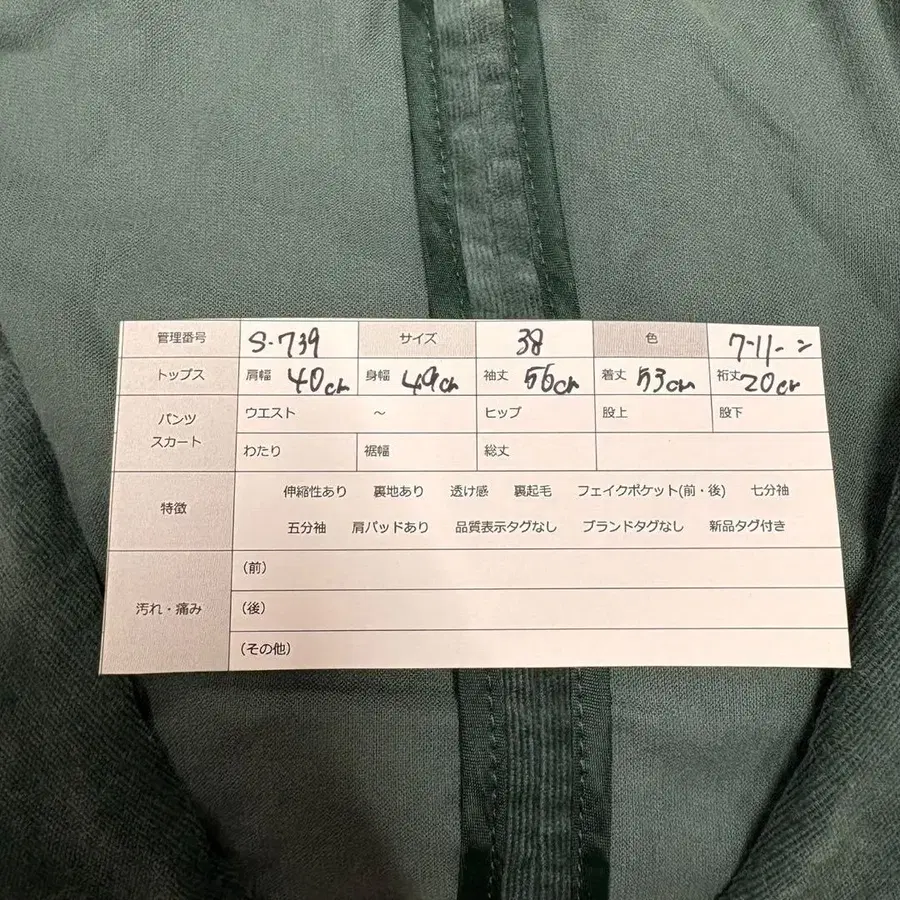 管理番号 S-739 サイズ 38 色 グリーン
トップス 肩幅 40cm 身幅 49cm 袖丈 56cm 着丈 53cm 裄丈 20cm
パンツ スカート ウエスト ～ ヒップ 股上 股下
わたり 裾幅 総丈
特徴 伸縮性あり 裏地あり 透け感 裏起毛 フェイクポケット(前・後) 七分袖
五分袖 肩パッドあり 品質表示タグなし ブランドタグなし 新品タグ付き
汚れ・痛み (前)
(後)
(その他)